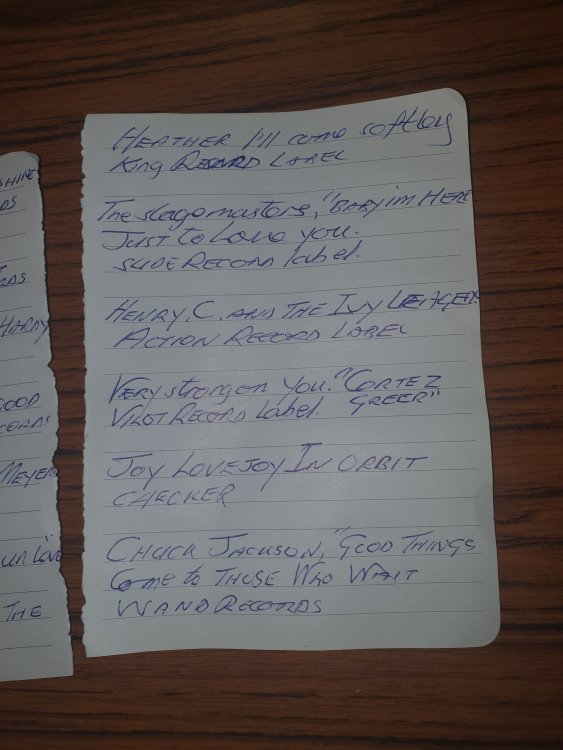 SHINE
DS
RDS
HARDY
GOOD
CORDS
MEYER
THE
HEATHER I'll come softley
King RECORD LABEL
The stagemasters, "BABY im HERE
JUST to Love you.
SLIDE RECORD label.
HENRY.C. AND THE IVY LEAGERS
ACTION RECORD LABEL
VERY strong on you. "CORTEZ
VILOT RECORD label GREER"
JOY LOVEJOY IN ORBIT
CHECKER
CHUCK JACKSON, "GOOD THINGS
Come to THOSE WHO WAIT
WAND RECORDS